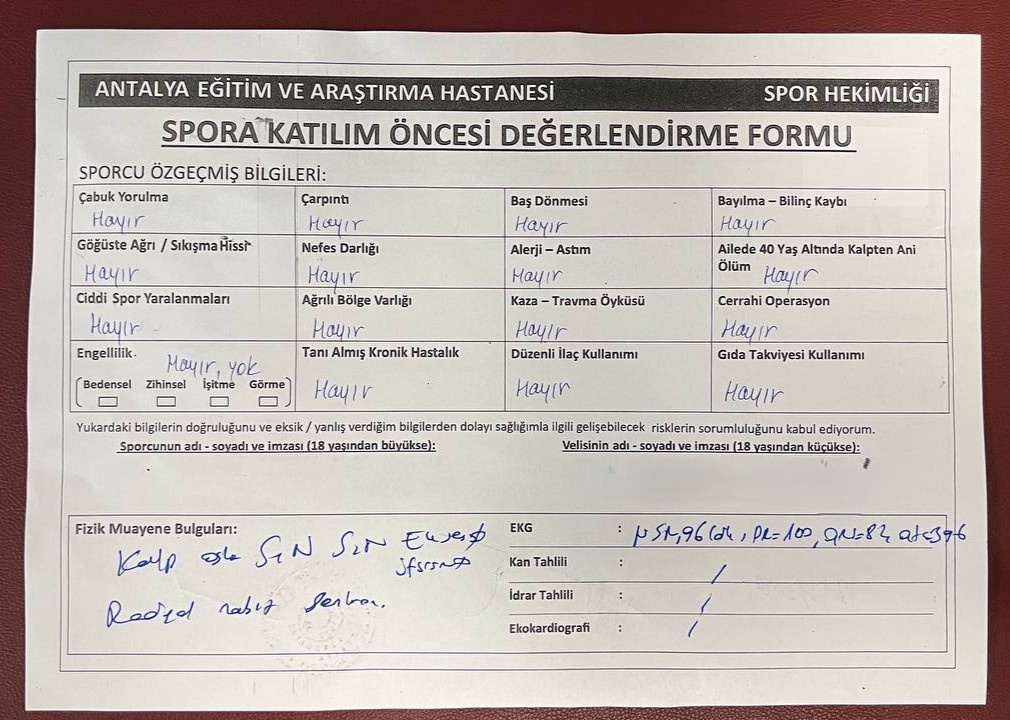 ANTALYA EĞİTİM VE ARAŞTIRMA HASTANESİ SPOR HEKİMLİĞİ
SPORA KATILIM ÖNCESİ DEĞERLENDİRME FORMU
SPORCU ÖZGEÇMİŞ BİLGİLERİ:
Çabuk Yorulma Çarpıntı Baş Dönmesi Bayılma – Bilinç Kaybı
Hayır Hayır Hayır Hayır
Göğüste Ağrı / Sıkışma Hissi Nefes Darlığı Alerji – Astım Ailede 40 Yaş Altında Kalpten Ani
Ölüm Hayır
Hayır Hayır Hayır
Ciddi Spor Yaralanmaları Ağrılı Bölge Varlığı Kaza – Travma Öyküsü Cerrahi Operasyon
Hayır Hayır Hayır Hayır
Engellilik. Tanı Almış Kronik Hastalık Düzenli İlaç Kullanımı Gıda Takviyesi Kullanımı
Hayır, yok
Bedensel Zihinsel İşitme Görme Hayır Hayır Hayır
Yukardaki bilgilerin doğruluğunu ve eksik / yanlış verdiğim bilgilerden dolayı sağlığımla ilgili gelişebilecek risklerin sorumluluğunu kabul ediyorum.
Sporcunun adı - soyadı ve imzası (18 yaşından büyükse): Velisinin adı - soyadı ve imzası (18 yaşından küçükse):
Fizik Muayene Bulguları:
Kalp S1N S2N
nabız
EKG :
Kan Tahlili : /
İdrar Tahlili : /
Ekokardiografi : /